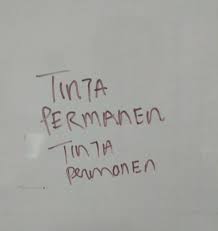 TINTA
PERMANEN
TINTA
permanen